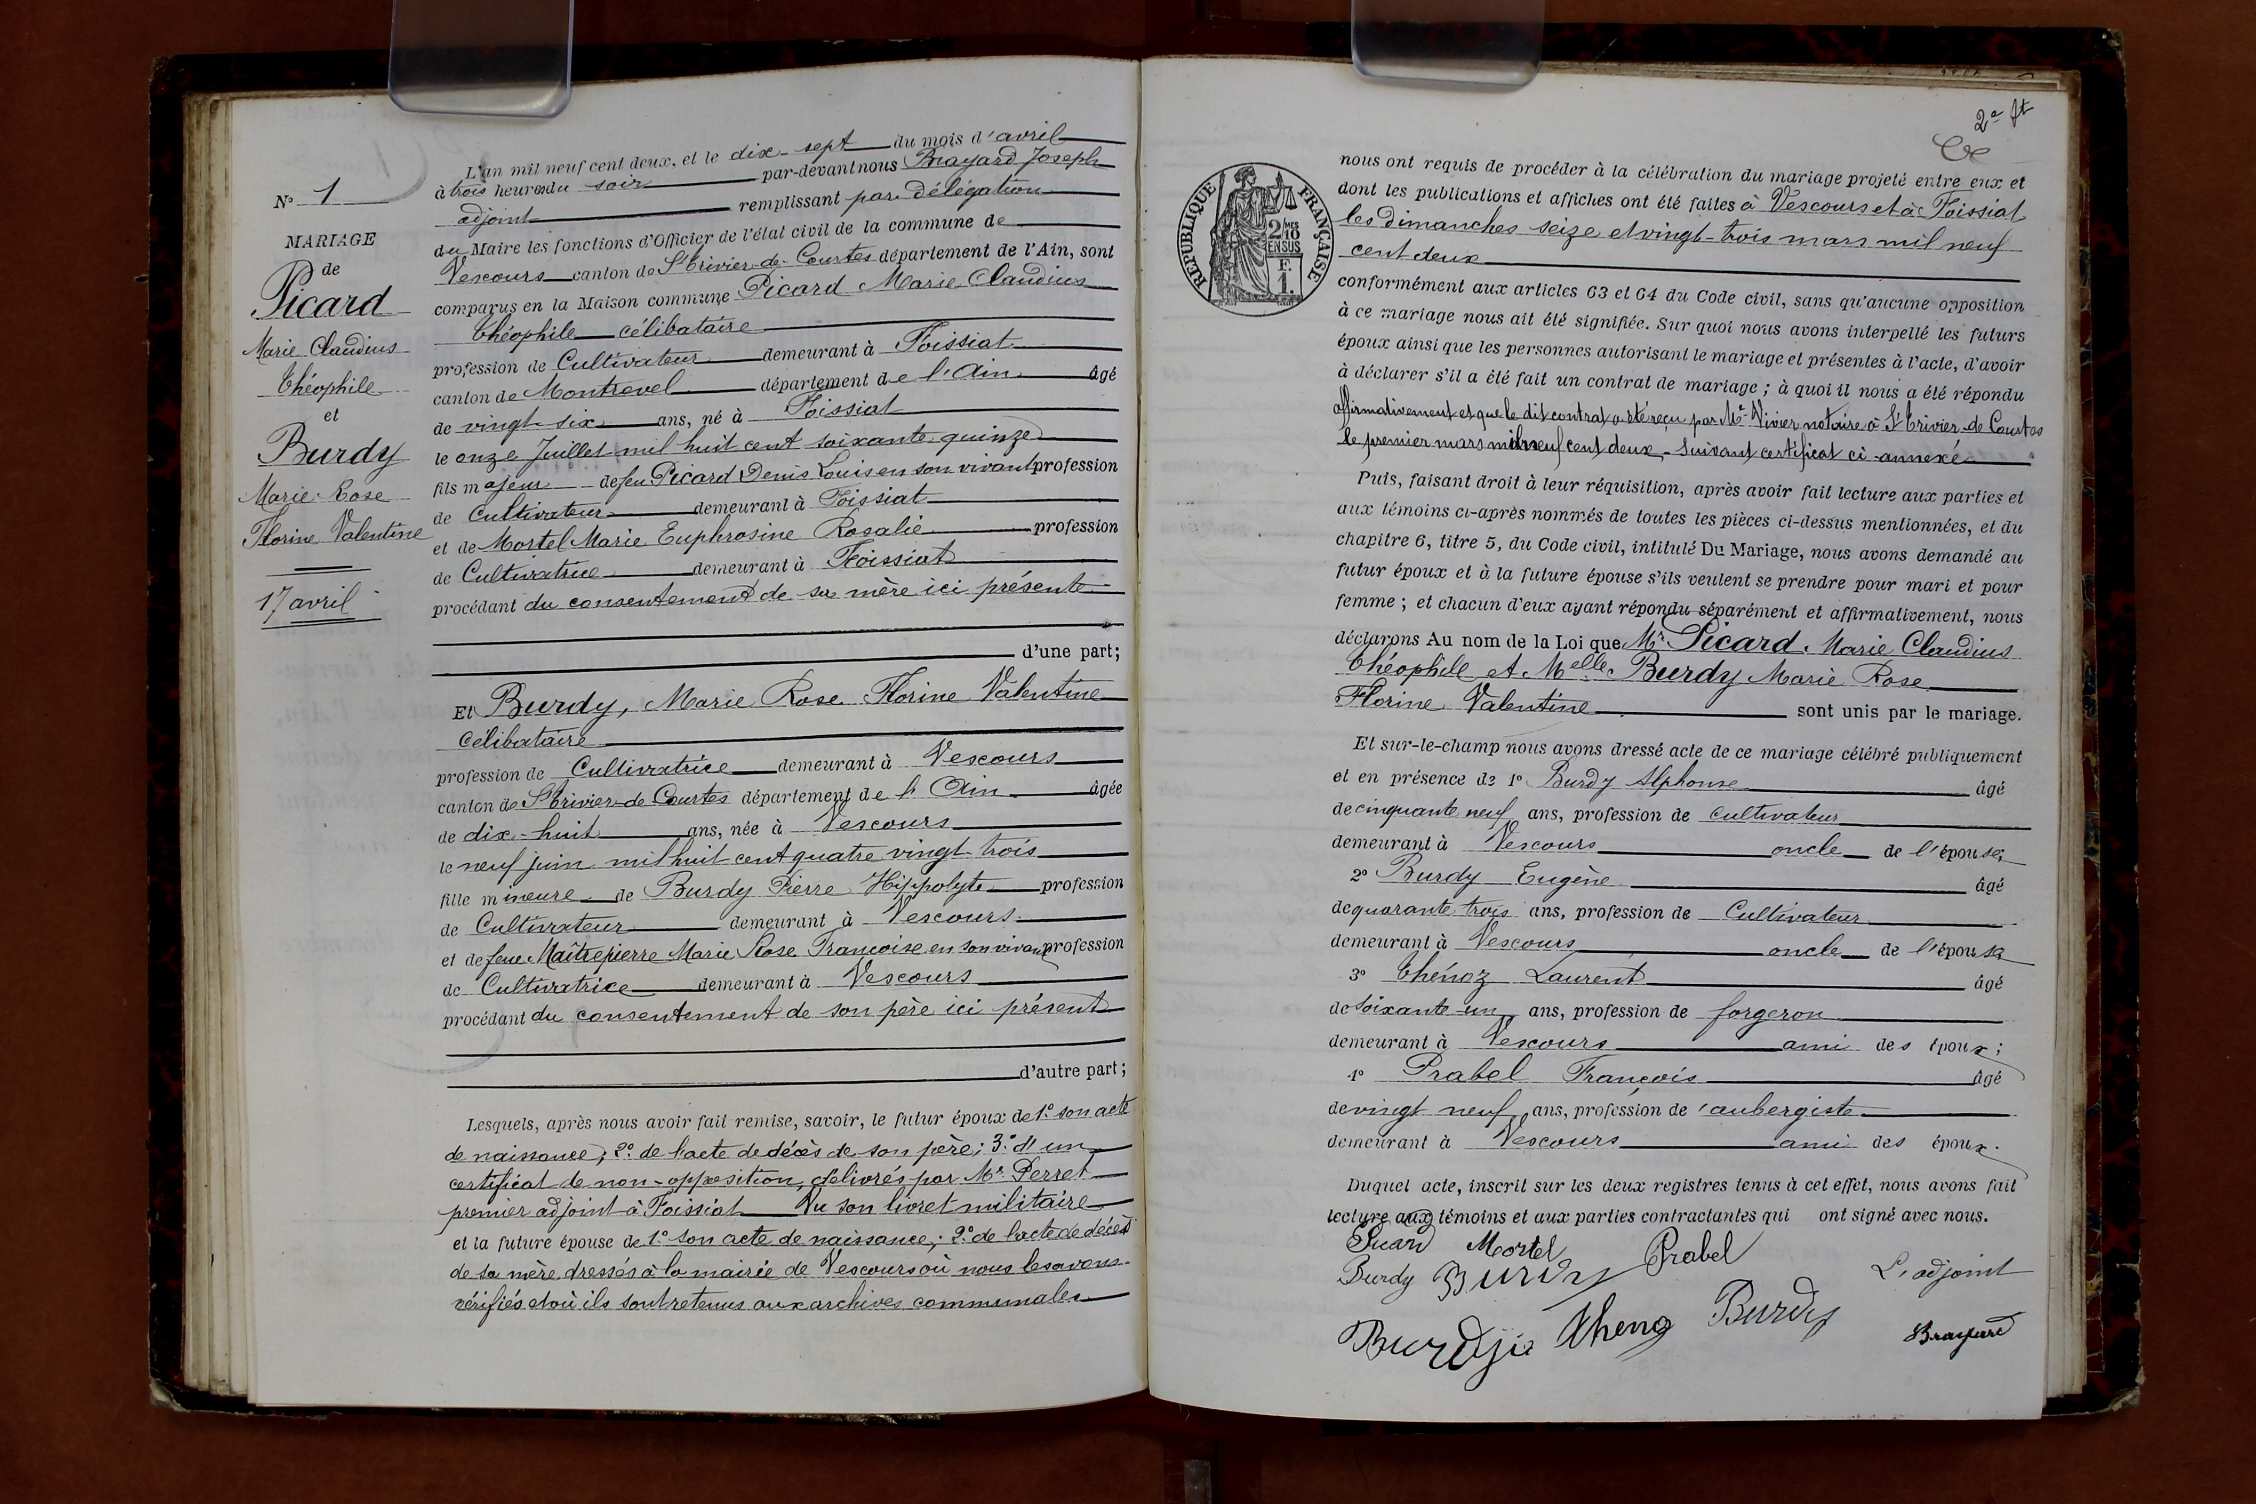 N° 1
MARIAGE
de
Picard
Marie Claudius
Théophile
et
Burdy
Marie Rose
Florine Valentine
17 avril
L'an mil neuf cent deux, et le dix-sept du mois d'avril
à trois heures du soir par-devant nous Brayard Joseph
adjoint remplissant par délégation
du Maire les fonctions d'Officier de l'état civil de la commune de
Vescours canton de St Trivier-de-Courtes département de l'Ain, sont
comparus en la Maison commune Picard Marie Claudius
Théophile célibataire
profession de Cultivateur demeurant à Foissiat
canton de Montrevel département de l'Ain âgé
de vingt-six ans, né à Foissiat
le onze Juillet mil huit cent soixante-quinze
fils majeur de feu Picard Denis Louis en son vivant profession
de Cultivateur demeurant à Foissiat
et de Mortel Marie Euphrosine Rosalie profession
de Cultivatrice demeurant à Foissiat
procédant du consentement de sa mère ici présente
d'une part;
Et Burdy, Marie Rose Florine Valentine
célibataire
profession de Cultivatrice demeurant à Vescours
canton de St Trivier-de-Courtes département de l'Ain âgée
de dix-huit ans, née à Vescours
le neuf juin mil huit cent quatre vingt trois
fille mineure de Burdy Pierre Hippolyte profession
de Cultivateur demeurant à Vescours
et de feue Maîtrepierre Marie Rose Françoise en son vivant profession
de Cultivatrice demeurant à Vescours
procédant du consentement de son père ici présent
d'autre part;
Lesquels, après nous avoir fait remise, savoir, le futur époux de 1° son acte
de naissance; 2° de l'acte de décès de son père; 3° d'un
certificat de non-opposition, délivrés par Mr Perret
premier adjoint à Foissiat Vu son livret militaire
et la future épouse de 1° son acte de naissance; 2° de l'acte de décès
de sa mère dressés à la mairie de Vescours où nous les avons
vérifiés et où ils sont retenus aux archives communales
2e ft
RÉPUBLIQUE FRANÇAISE
2 MES
10
EN SUS
F.
1.
nous ont requis de procéder à la célébration du mariage projeté entre eux et
dont les publications et affiches ont été faites à Vescours et à Foissiat
les dimanches seize et vingt-trois mars mil neuf
cent deux
conformément aux articles 63 et 64 du Code civil, sans qu'aucune opposition
à ce mariage nous ait été signifiée. Sur quoi nous avons interpellé les futurs
époux ainsi que les personnes autorisant le mariage et présentes à l'acte, d'avoir
à déclarer s'il a été fait un contrat de mariage; à quoi il nous a été répondu
affirmativement et que le dit contrat a été reçu par Me Vivier notaire à St Trivier-de-Courtes
le premier mars mil neuf cent deux, suivant certificat ci-annexé
Puis, faisant droit à leur réquisition, après avoir fait lecture aux parties et
aux témoins ci-après nommés de toutes les pièces ci-dessus mentionnées, et du
chapitre 6, titre 5, du Code civil, intitulé Du Mariage, nous avons demandé au
futur époux et à la future épouse s'ils veulent se prendre pour mari et pour
femme; et chacun d'eux ayant répondu séparément et affirmativement, nous
déclarons Au nom de la Loi que Mr Picard Marie Claudius
Théophile et Melle Burdy Marie Rose
Florine Valentine sont unis par le mariage.
Et sur-le-champ nous avons dressé acte de ce mariage célébré publiquement
et en présence de 1° Burdy Alphonse âgé
de cinquante neuf ans, profession de cultivateur
demeurant à Vescours oncle de l'épouse
2° Burdy Eugène âgé
de quarante trois ans, profession de Cultivateur
demeurant à Vescours oncle de l'épouse
3° Thénoz Laurent âgé
de soixante-un ans, profession de forgeron
demeurant à Vescours ami des époux;
4° Prabel François âgé
de vingt neuf ans, profession de aubergiste
demeurant à Vescours ami des époux.
Duquel acte, inscrit sur les deux registres tenus à cet effet, nous avons fait
lecture aux témoins et aux parties contractantes qui ont signé avec nous.
Picard Mortel Prabel
Burdy Burdy L'adjoint
Burdy Thenoz Burdy Brayard